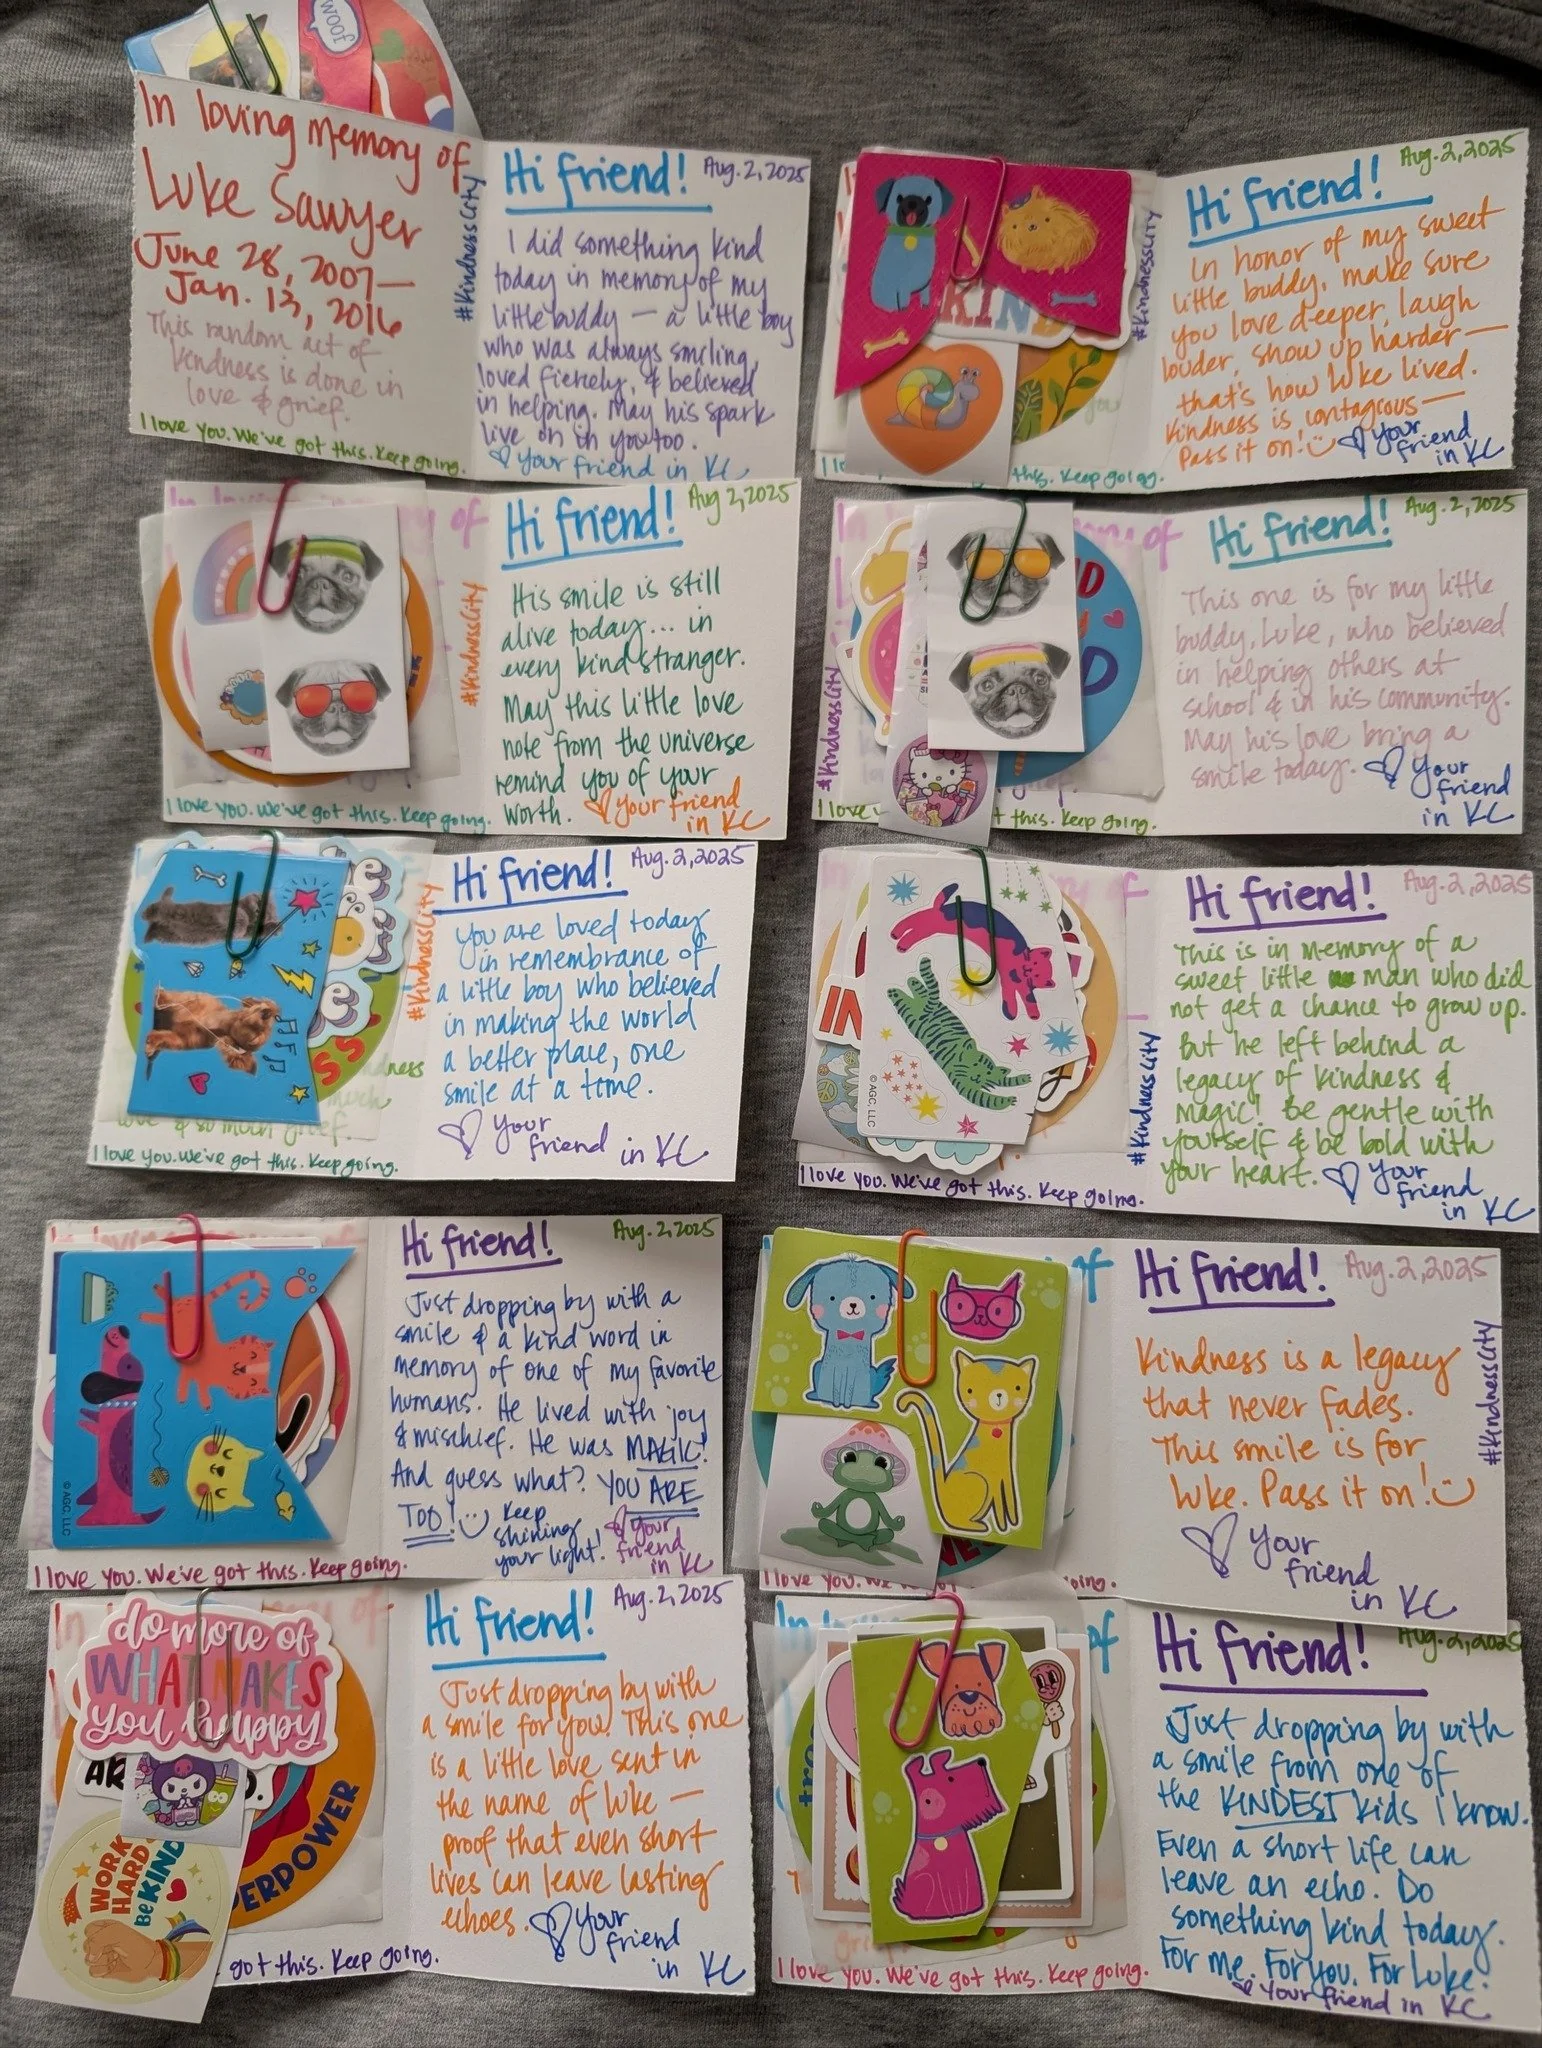 WOOF
In loving memory of
Luke Sawyer
June 28, 2007—
Jan. 13, 2016
This random act of
kindness is done in
love & grief.
I love you. We've got this. Keep going.
#KindnessCity
Hi friend!
Aug. 2, 2025
I did something kind
today in memory of my
little buddy — a little boy
who was always smiling,
loved fiercely, & believed
in helping. May his spark
live on in you too.
♡ Your friend in KC
KIND
you
this. Keep going.
#KindnessCity
Hi friend!
Aug. 2, 2025
In honor of my sweet
little buddy, make sure
you love deeper, laugh
louder, show up harder—
that's how Luke lived.
Kindness is contagious—
Pass it on! ☺ ♡ Your
friend
in KC
of
I love you. We've got this. Keep going.
#KindnessCity
Hi friend!
Aug 2, 2025
His smile is still
alive today... in
every kind stranger.
May this little love
note from the universe
remind you of your
worth. ♡ Your friend
in KC
of
#KindnessCity
I love
this. Keep going.
Hi friend!
Aug. 2, 2025
This one is for my little
buddy, Luke, who believed
in helping others at
school & in his community.
May his love bring a
smile today. ♡ Your
friend
in KC
much
love & so much grief.
I love you. We've got this. Keep going.
#KindnessCity
Hi friend!
Aug. 2, 2025
You are loved today
in remembrance of
a little boy who believed
in making the world
a better place, one
smile at a time.
♡ Your
friend in KC
© AGC, LLC
I love you. We've got this. Keep going.
#KindnessCity
Hi friend!
Aug. 2, 2025
This is in memory of a
sweet little man who did
not get a chance to grow up.
But he left behind a
legacy of kindness &
magic! Be gentle with
yourself & be bold with
your heart. ♡ Your
friend
in KC
© AGC, LLC
I love you. We've got this. Keep going.
Hi friend!
Aug. 2, 2025
Just dropping by with a
smile & a kind word in
memory of one of my favorite
humans. He lived with joy
& mischief. He was MAGIC!
And guess what? YOU ARE
TOO! ☺ Keep
shining
your light!
♡ Your
friend
in KC
of
I love you. We
going.
Hi friend!
Aug. 2, 2025
#KindnessCity
Kindness is a legacy
that never fades.
This smile is for
Luke. Pass it on! ☺
♡ Your
friend
in KC
In
of
do more of
WHAT MAKES
you happy
WORK
HARD
Be KIND
ERPOWER
got this. Keep going.
Hi friend!
Aug. 2, 2025
Just dropping by with
a smile for you! This one
is a little love sent in
the name of Luke —
proof that even short
lives can leave lasting
echoes. ♡ Your
friend
in KC
In
of
I love you. We've got this. Keep going.
Hi friend!
Aug. 2, 2025
Just dropping by with
a smile from one of
the KINDEST kids I know.
Even a short life can
leave an echo. Do
something kind today.
For me. For you. For Luke.
♡ Your friend in KC